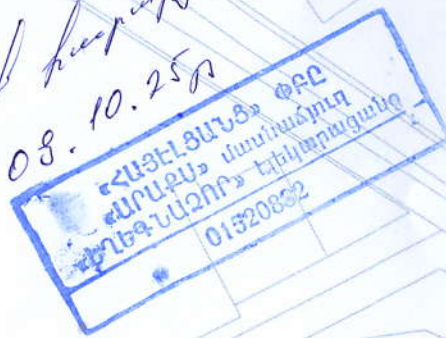 09.10.25թ
«ՀԱՅԷԼՑԱՆՑ» ՓԲԸ
«ԱՐԱՔՍ» մասնաճյուղ
«ԵՂԵԳՆԱՁՈՐ» էլեկտրացանց
01520832